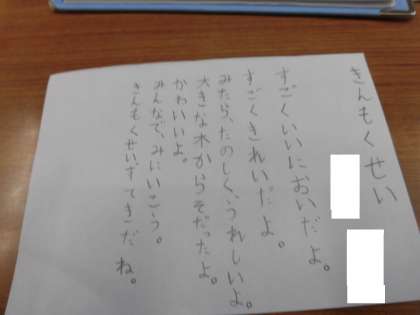 きんもくせい
すごくいいにおいだよ。
すごくきれいだよ。
みたら、たのしく、うれしいよ。
大きな木からそだったよ。
かわいいよ。
みんなで、みにいこう。
きんもくせい、すてきだね。